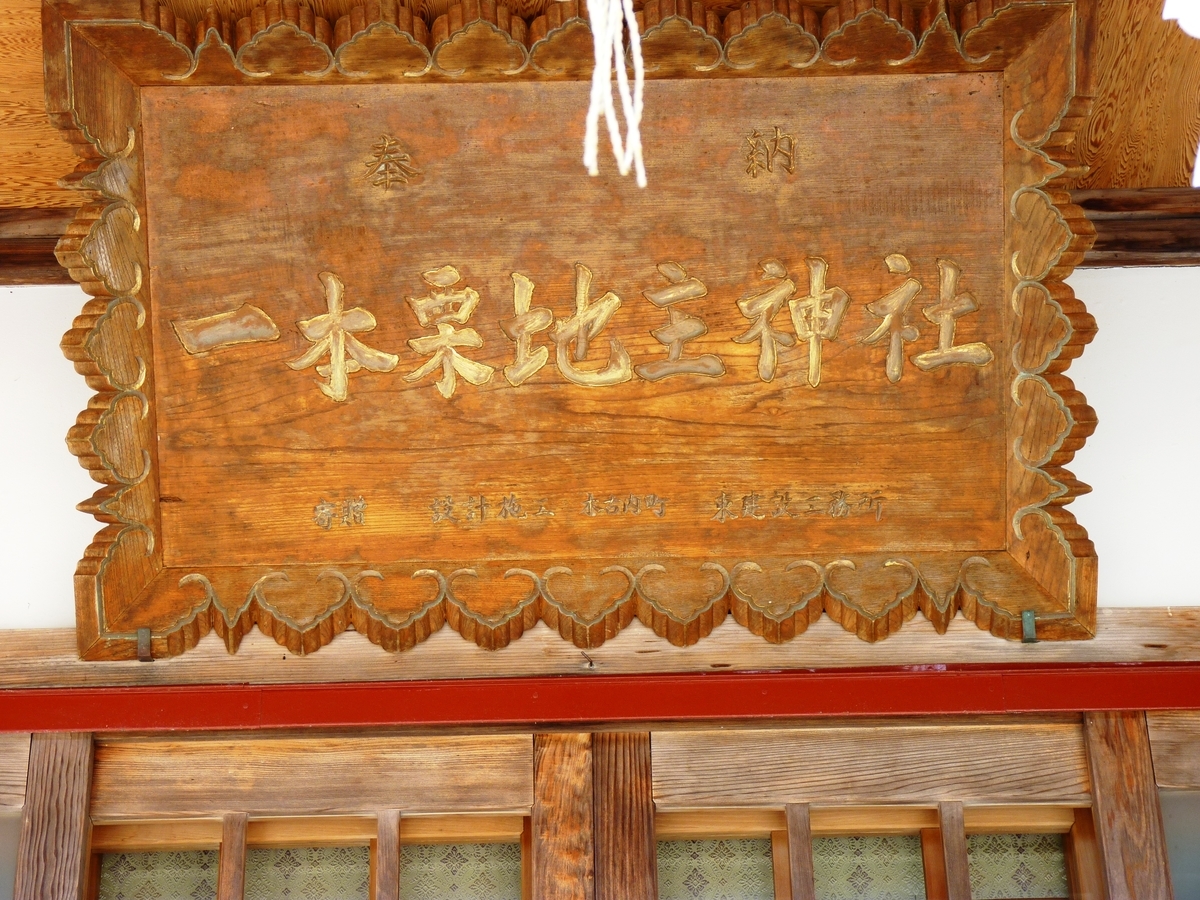 奉 納
一本栗地主神社
寄贈 設計施工 木古内町 東建設工務所